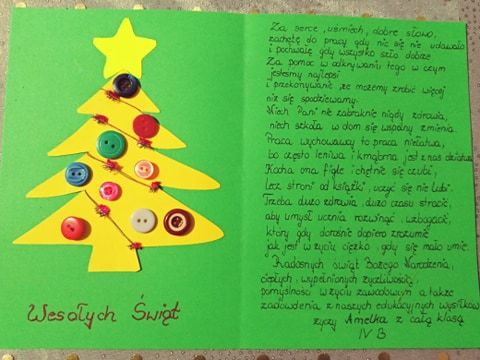 Wesołych Świąt
Za serce, uśmiech, dobre słowo,
zachętę do pracy gdy nic się nie udawało
i pochwałę gdy wszystko szło dobrze
Za pomoc w odkrywaniu tego w czym
jesteśmy najlepsi
i przekonywanie, że możemy zrobić więcej
niż się spodziewamy.
Niech Pani nie zabraknie nigdy zdrowia,
niech szkoła w dom się wspólny zmienia.
Praca wychowawcy to praca niełatwa,
bo często leniwa i krnąbrna jest nas dziatwa
Kocha ona figle i chętnie się czubi,
lecz stroni od książki, uczyć się nie lubi.
Trzeba dużo zdrowia, dużo czasu stracić,
aby umysł ucznia rozwinąć, wzbogacić,
który gdy dorośnie dopiero zrozumie
jak jest w życiu ciężko, gdy się mało umie.
Radosnych świąt Bożego Narodzenia,
ciepłych, wypełnionych życzliwością,
pomyślności w życiu zawodowym a także
zadowolenia z naszych edukacyjnych wysiłków
życzy Amelka z całą klasą
IV B